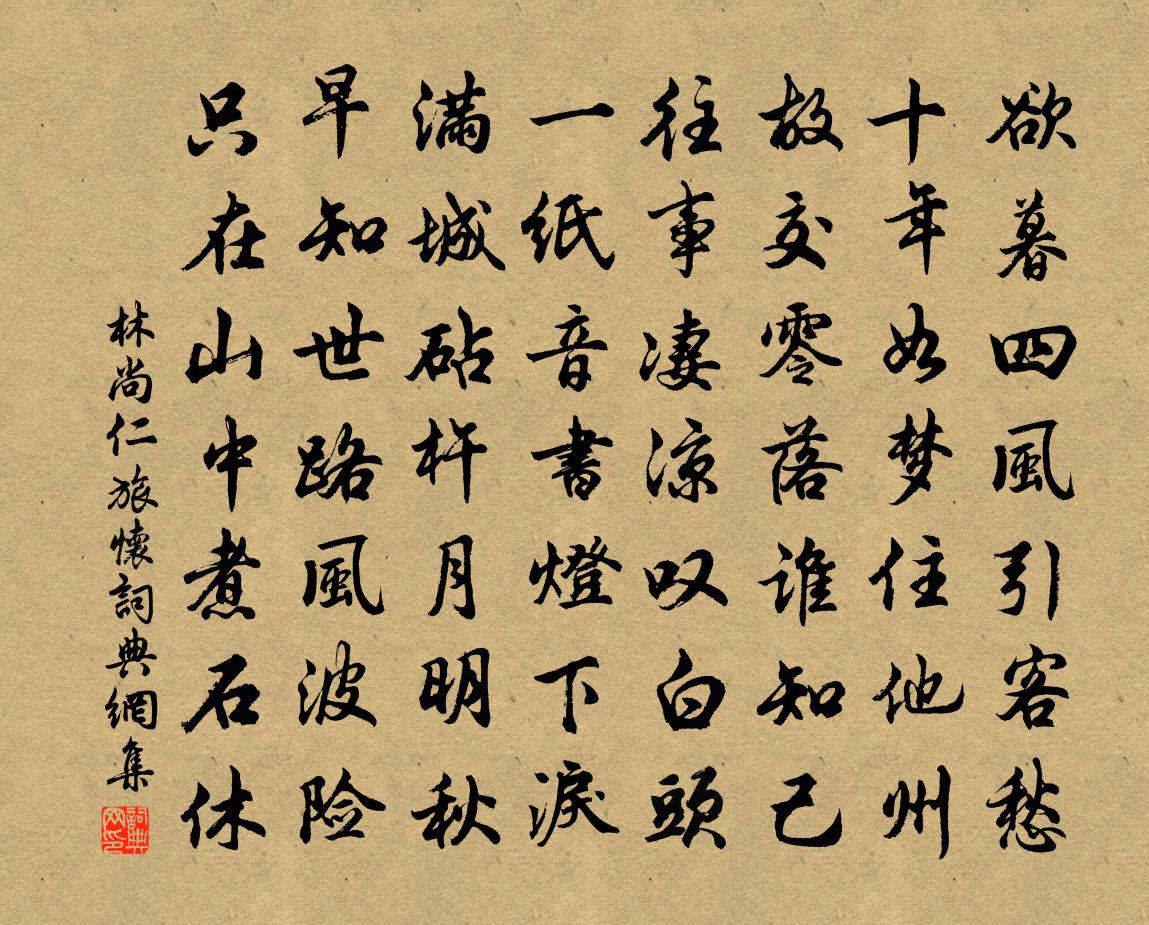 欲暮四風引客愁
十年如梦住他州
故交零落谁知己
往事凄涼叹白頭
一紙音書燈下淚
滿城砧杵月明秋
早知世路風波险
只在山中煮石休
林尚仁旅懷詞典網集
詞典网印